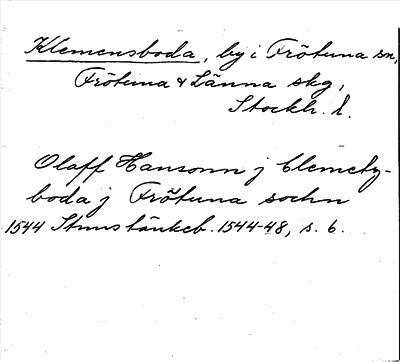 Klemensboda, by i Frötuna sn,
Frötuna & Länna skg,
Stockh. l.
Olaff Hansonn j Clemetz-
boda j Frötuna sochn
1544 Stmns tänkeb. 1544-48, s. 6.